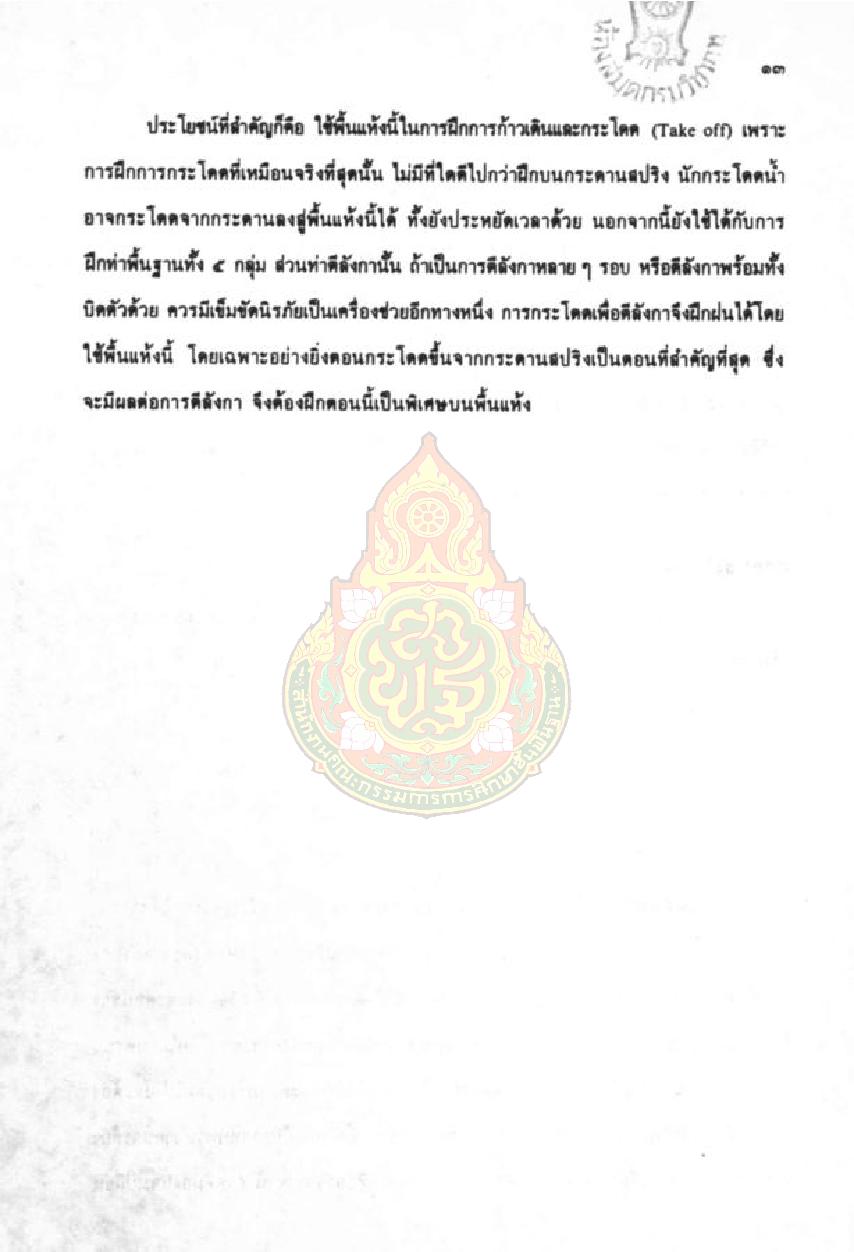 ห้องสมุดกรมวิชาการ
๑๓
ประโยชน์ที่สำคัญก็คือ ใช้พื้นแห้งนี้ในการฝึกการก้าวเดินและกระโดด (Take off) เพราะ
การฝึกการกระโดดที่เหมือนจริงที่สุดนั้น ไม่มีที่ใดดีไปกว่าฝึกบนกระดานสปริง นักกระโดดน้ำ
อาจกระโดดจากกระดานลงสู่พื้นแห้งนี้ได้ ทั้งยังประหยัดเวลาด้วย นอกจากนี้ยังใช้ได้กับการ
ฝึกท่าพื้นฐานทั้ง ๕ กลุ่ม ส่วนท่าตีลังกานั้น ถ้าเป็นการตีลังกาหลาย ๆ รอบ หรือตีลังกาพร้อมทั้ง
บิดตัวด้วย ควรมีเข็มขัดนิรภัยเป็นเครื่องช่วยอีกทางหนึ่ง การกระโดดเพื่อตีลังกาจึงฝึกฝนได้โดย
ใช้พื้นแห้งนี้ โดยเฉพาะอย่างยิ่งตอนกระโดดขึ้นจากกระดานสปริงเป็นตอนที่สำคัญที่สุด ซึ่ง
จะมีผลต่อการตีลังกา จึงต้องฝึกตอนนี้เป็นพิเศษบนพื้นแห้ง
สพฐ
สำนักงานคณะกรรมการการศึกษาขั้นพื้นฐาน